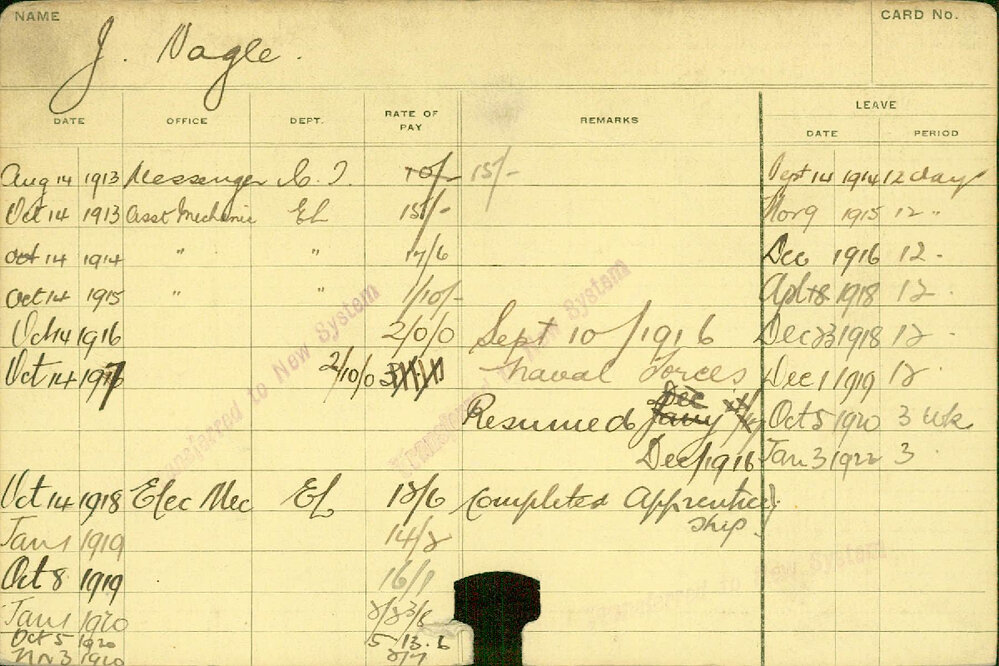 NAME
CARD No.
J. Nagle.
DATE OFFICE DEPT. RATE OF PAY REMARKS LEAVE
DATE PERIOD
Aug 14 1913 Messenger 10/- 15/- Sept 14 1914 12 days
Oct 14 1913 Asst Mechanic EL 15/- Nov 9 1915 12 "
Oct 14 1914 " " 17/6 Dec 1916 12 -
Oct 14 1915 " " 1/10/- Apl 8 1918 12 -
Oct 14 1916 2/0/0 Sept 10/1916 Dec 23 1918 12 -
Oct 14 1917 2/10/0 Naval Forces Dec 1 1919 12 -
Resumed Dec Jany Oct 5 1920 3 wks
Dec/1916 Jan 3 1922 3
Oct 14 1918 Elec Mec EL 12/6 Completed Apprentice
ship.
Jan 1 1919 14/2
Oct 8 1919 16/1
Jan 1 1920
Oct 5 1920 5.13.6
1920
Transferred to New System
Transferred to New System
Transferred to New System